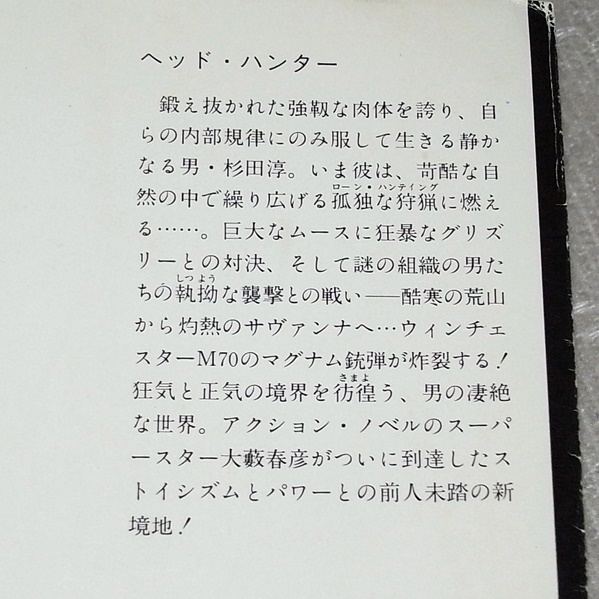 ヘッド・ハンター
鍛え抜かれた強靱な肉体を誇り、自
らの内部規律にのみ服して生きる静か
なる男・杉田淳。いま彼は、苛酷な自
ローン・ハンティング
然の中で繰り広げる孤独な狩猟に燃え
る……。巨大なムースに狂暴なグリズ
リーとの対決、そして謎の組織の男た
しつよう
ちの執拗な襲撃との戦い――酷寒の荒山
から灼熱のサヴァンナへ…ウィンチェ
スターM70のマグナム銃弾が炸裂する!
さまよ
狂気と正気の境界を彷徨う、男の凄絶
な世界。アクション・ノベルのスーパ
ースター大藪春彦がついに到達したス
トイシズムとパワーとの前人未踏の新
境地!